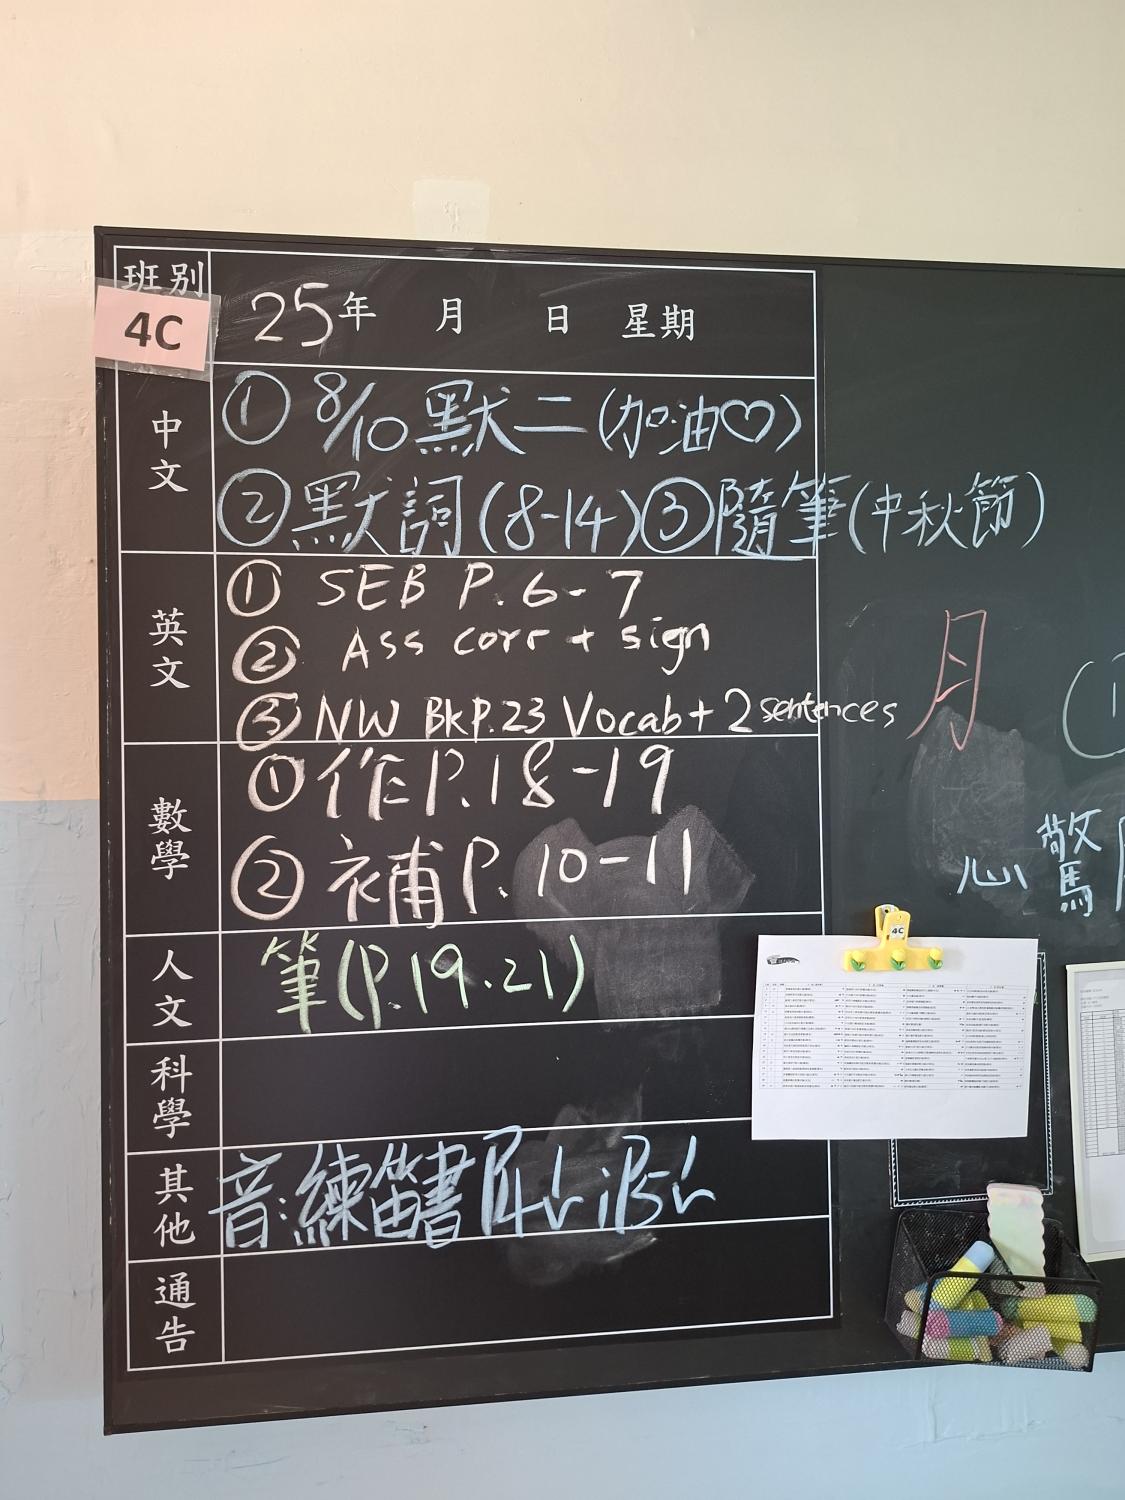 班別
4C
25年 月 日 星期
中文
① 8/10 默二 (加油♡)
② 默詞 (8-14) ③ 隨筆 (中秋節)
英文
① SEB P.6-7
② Ass corr + sign
③ NW Bk P.23 Vocab + 2 sentences
數學
① 作 P.18-19
② 補 P.10-11
人文
筆 (P.19.21)
科學
其他
音:練笛書
通告
月
①
心 驚
4C